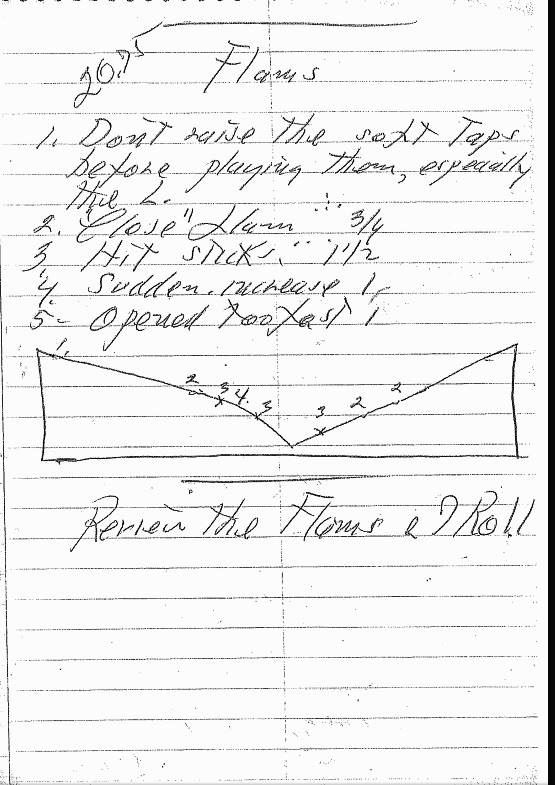 20.75
Flams
1. Don't raise the soft Taps
before playing them, especially
the L.
2. "Close" flam ∴ 3/4
3. Hit sticks. 1 1/2
4. Sudden. increase 1
5- Opened too fast 1
1.
2 3 4. 3 3 2 2
Review the Flams & 7 Roll